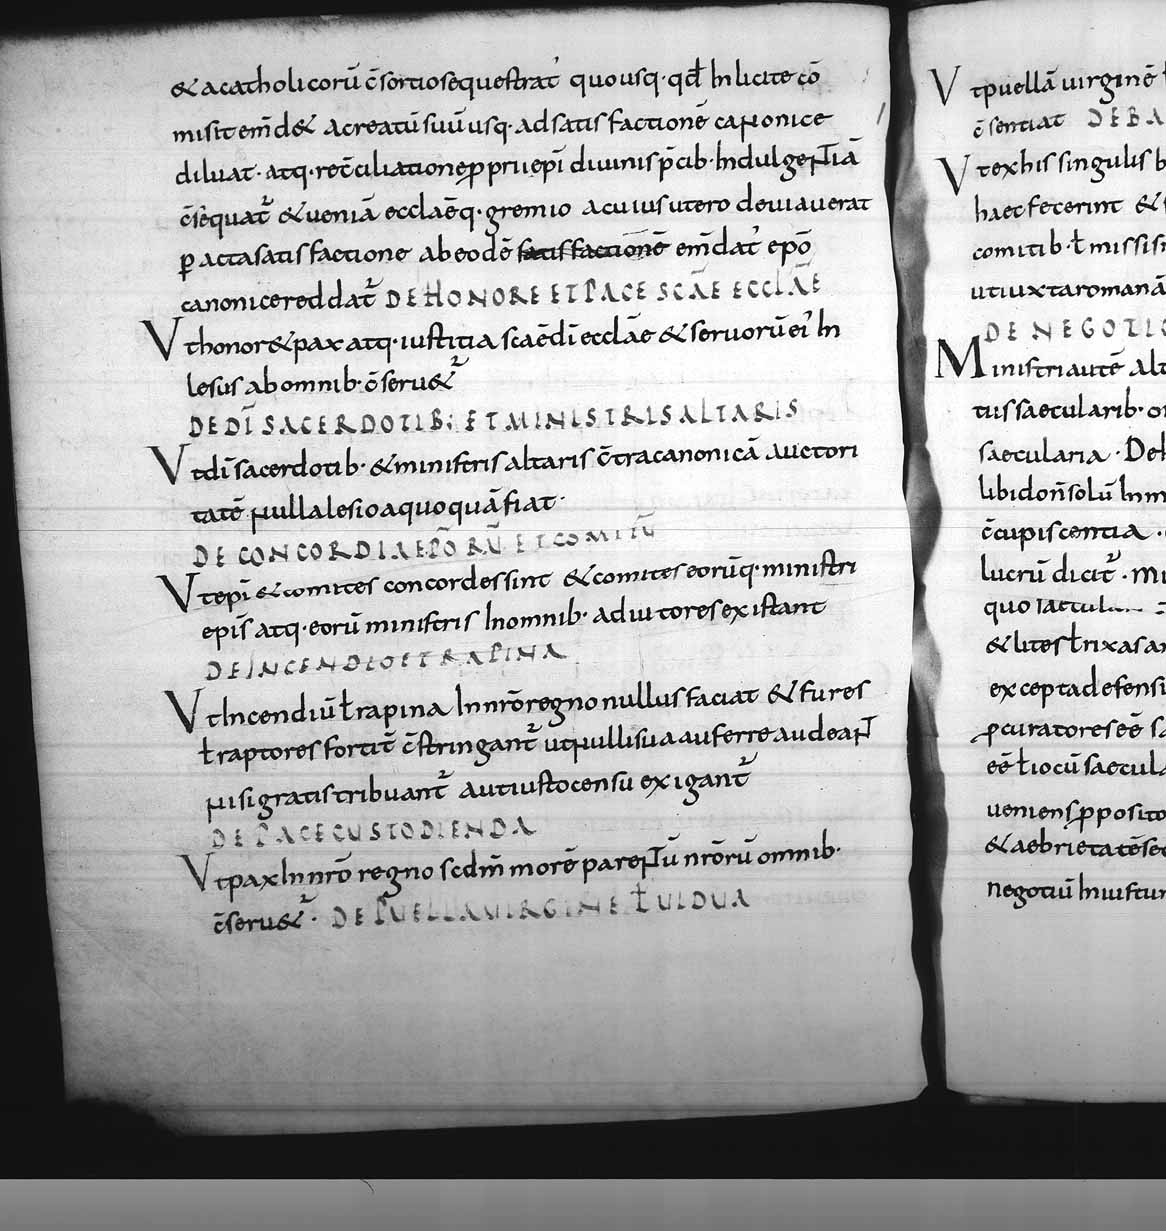 & a catholicorū c̄sortio sequestrat' quousq· qđ Inlicite cō
misit em̄d& a creatū suū usq· ad satisfactionē canonice
diluat· atq· rec̄ciliatione p pru epī diuinis p̄cib· Indulgentiā
c̄sequat̄ & ueniā ecclaēq· gremio a cuius utero deuiauerat
p acta satisfactione ab eodē satisfactionē em̄dat' epō
canonice reddat̄ DE HONORE ET PACE SCĀE ECCLĀE
Vt honor & pax atq· iustitia scaē dī ecclāe & seruorū ei' In
lesus ab omnib· c̄seru&
DE DĪ SACERDOTIB; ET MINISTRIS ALTARIS
Vt dī sacerdotib· & ministris altaris c̄tra canonicā auctori
tatē nulla lesio a quoquā fiat·
DE CONCORDIA EPŌRŪ ET COMITŪ
Vt epī & comites concordes sint & comites eorūq· ministri
epīs atq· eorū ministris Inomnib· adiutores existant
DE INCENDIO ET RAPINA
Vt Incendiū ł rapina In nrō regno nullus faciat & fures
ł raptores fortit̄ c̄stringant̄ ut nulli sua auferre audeant
nisi gratis tribuant̄ aut iusto censu exigant̄
DE PACE CUSTODIENDA
Vt pax In nrō regno scdm̄ morē parentū nrōrū omnib·
c̄seru&· DE PUELLA UIRGINE ł UIDUA
Vt puellā uirginē ł
c̄sentiat DE BA
Vt ex his singulis
haec fecerint &
comitib· ł missis
ut iuxta romanā
DE NEGOTI
Ministri autē alt
tus saecularib·
saecularia · De
libidon̄ solū In
c̄cupiscentia ·
lucrū dicit̄ ·
quo
& lites ł rixas
excepta defensi
pcuratores eē
eē ł iocū saecula
ueniens p posito
& aebrietatē
negotiū Iniustu